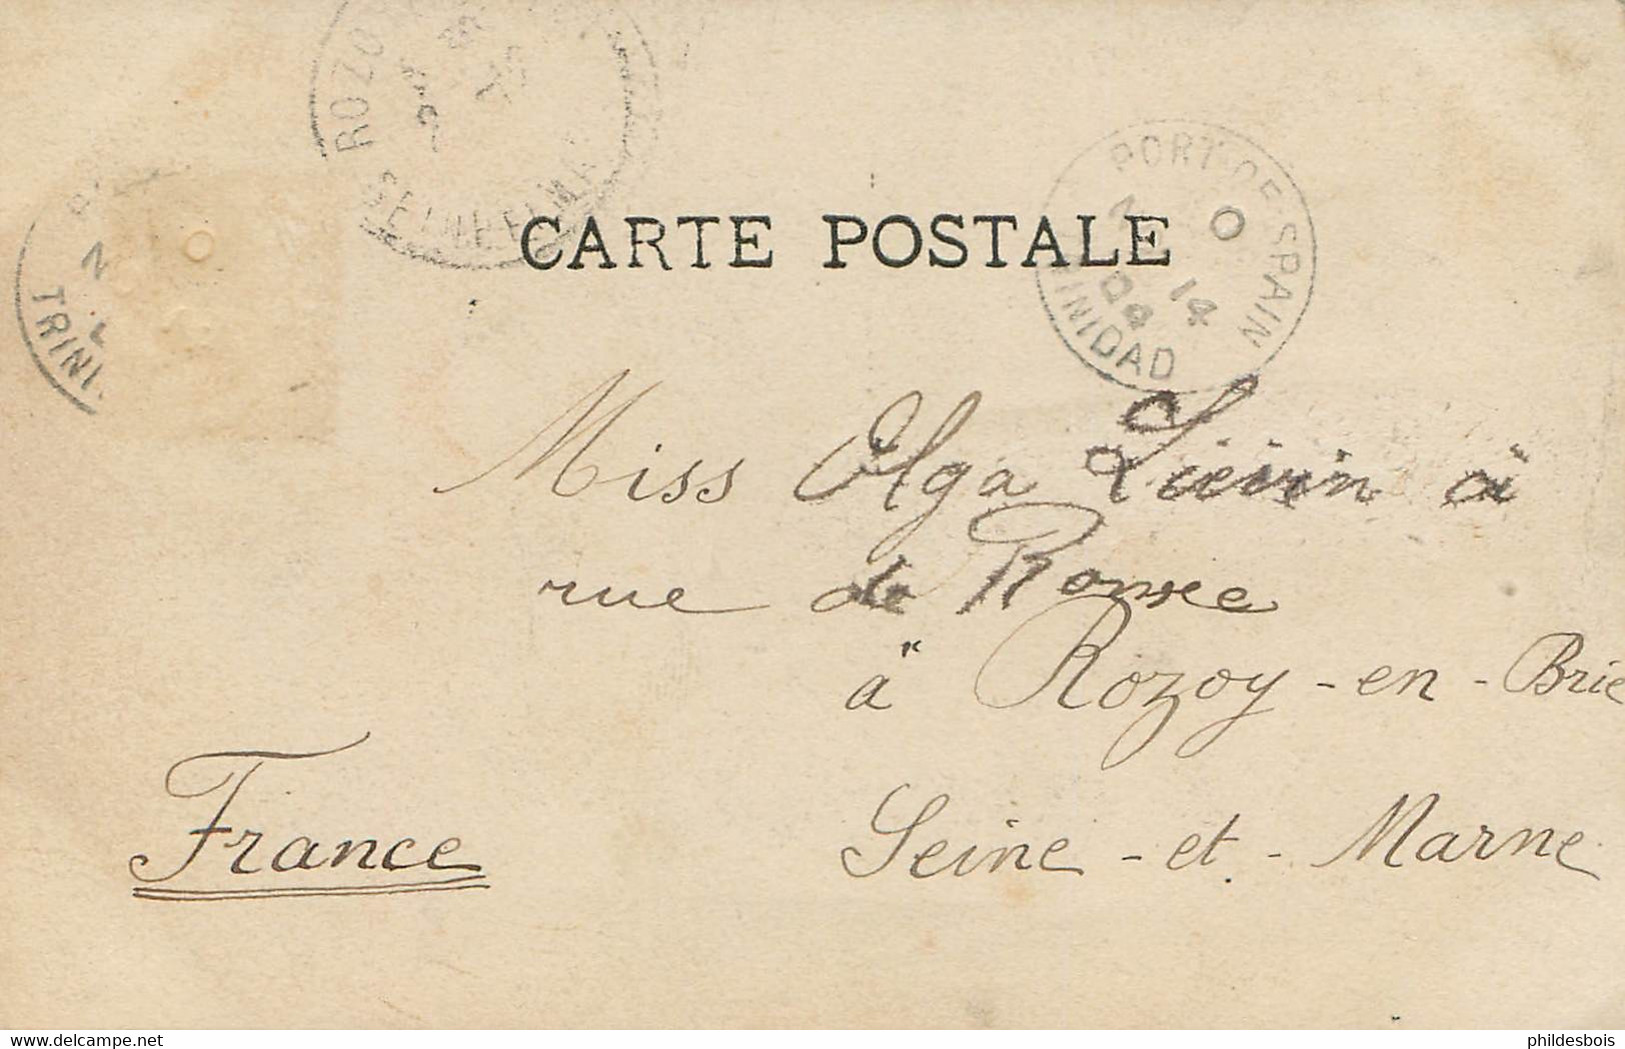 ROZO
SEINE
TRINI
PORT OF SPAIN
O
14
04
INIDAD
CARTE POSTALE
Miss Olga Liévin à
rue de Romée
à Rozoy-en-Brie
Seine-et-Marne
France
delcampe.net
phildesbois